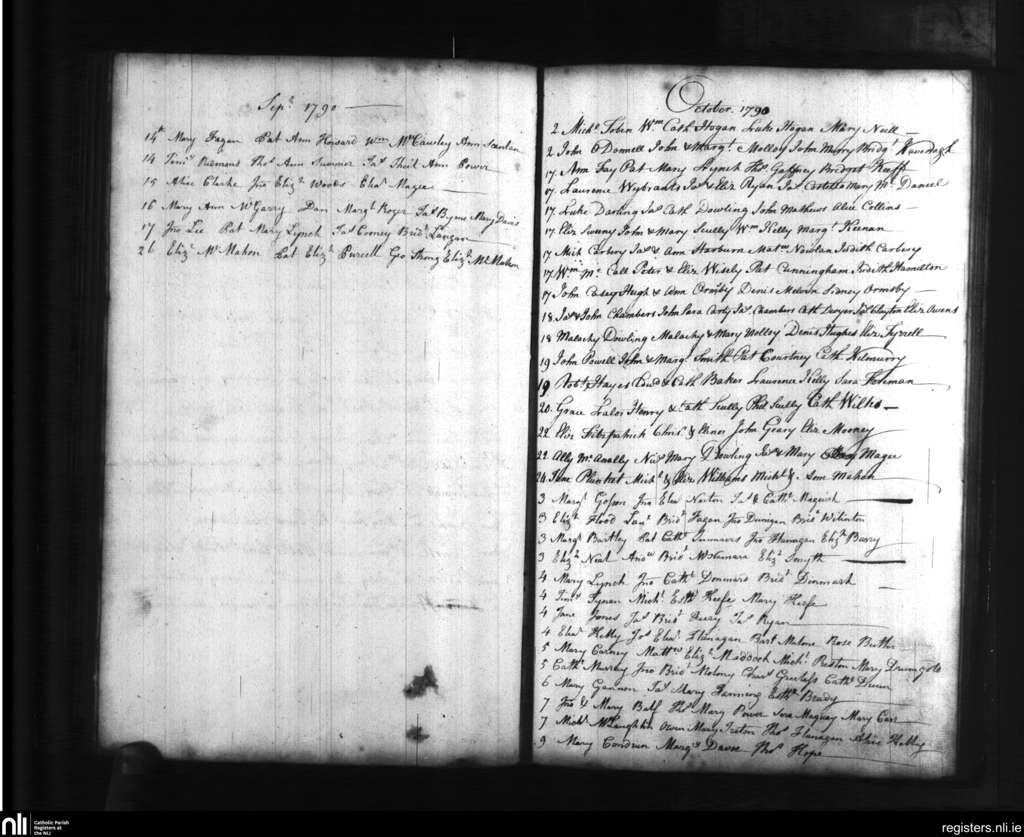 Sepr. 1790
14th Mary Fagan Pat Ann Howard Wm McCawley Ann Scanlan
14 Timy Riemons Thos Ann Summer Jas Thuil Ann Power
15 Alice Clarke Jno Elizh Weekes Elear Magee
16 Mary Ann McGarry Dan Margt Roger Jas Byrne Mary Davis
17 Jno Lee Pat Mary Lynch Jas Cooney Bridt Langan
26 Elizh McMahon Pat Elizh Purcell Geo Strong Elizh McMahon
October. 1790
2 Michl. Tobin Wm Cath Hogan Luke Hogan Mary Neill
2 John O'Donnell John & Margt. Molloy John Murry Bridgt Kavanagh
17. Ann Fay Pat Mary Lynch Thos. Gaffney Bridget Keeffe
17. Laurence Wybrants Jas & Eliz Ryan Jas Costillo Mary Mc Daniel
17. Luke Darling Jas Cath Dowling John Mathews Alice Collins
17. Eliz Sweny John & Mary Scully Wm Kelly Margt Keenan
17 Mich Carbery Jas & Ann Starburn Mattw Nowlan Judith Carbery
17. Wm Mc Call Peter & Eliz Wisely Pat Cunningham Judith Hamilton
17 John Casey Hugh & Ann Ormsby Denis Melvin Sidney Ormsby
18. Jas & John Chambers John Sara Carty Jas. Chambers Cath Dwyer Jas Clayton Eliz Owens
18 Malachy Dowling Malachy & Mary Molloy Denis Hughes Eliz Tyrrell
19 John Powell John & Margt. Smith Pat Courtney Cath Kilmurry
19 Robt. Hayes Edwd & Cath Baker Laurence Kelly Sara Foreman
20. Grace Lalor Henry & Cath Scully Phil Scully Cath Wilks
22 Eliz Fitzpatrick Chrisr & Elinor John Geary Eliz Mooney
22. Ally McAnally Nics Mary Dowling Jas & Mary Magee
24 Jane Plunket Michl & Eliz Williams Michl & Mahon
3 Margt Jno Elea Norton Jas & Cathe Maguish
3 Elizh Flood Lau Bridt Fagan Jno Dunigan Bridt Wilinton
3 Margt Bartley Pat Cathe Summers Jno Flanagan Elizh Barry
3 Elizh Neal Andw Bridt McNamara Elizh Smyth
4 Mary Lynch Jno Cathe Bridt Denmark
4 Timy Tynan Michl Esthr Keefe Mary Keefe
4 Jane Jones Jas Bridt Ryan
4 Elear Kelly Jos Elear Flanagan Bart Malone Rose Butler
5 Mary Carney Mattw Elizh Maddock Michl Preston Mary Drumgole
5 Cathe Murray Jno Bridt Molony Chars Cathe
6 Mary Gannon Jas Mary Fanning Esthr Brady
7 Jno & Mary Balf Thos Mary Power Sara Maguay Mary Carr
7 Michl McLaughlin Owen Mary Thos Flanagan Alice Kelly
9 Mary Condron Margt Thos Hope
nli
Catholic Parish
Registers at
the NLI
registers.nli.ie